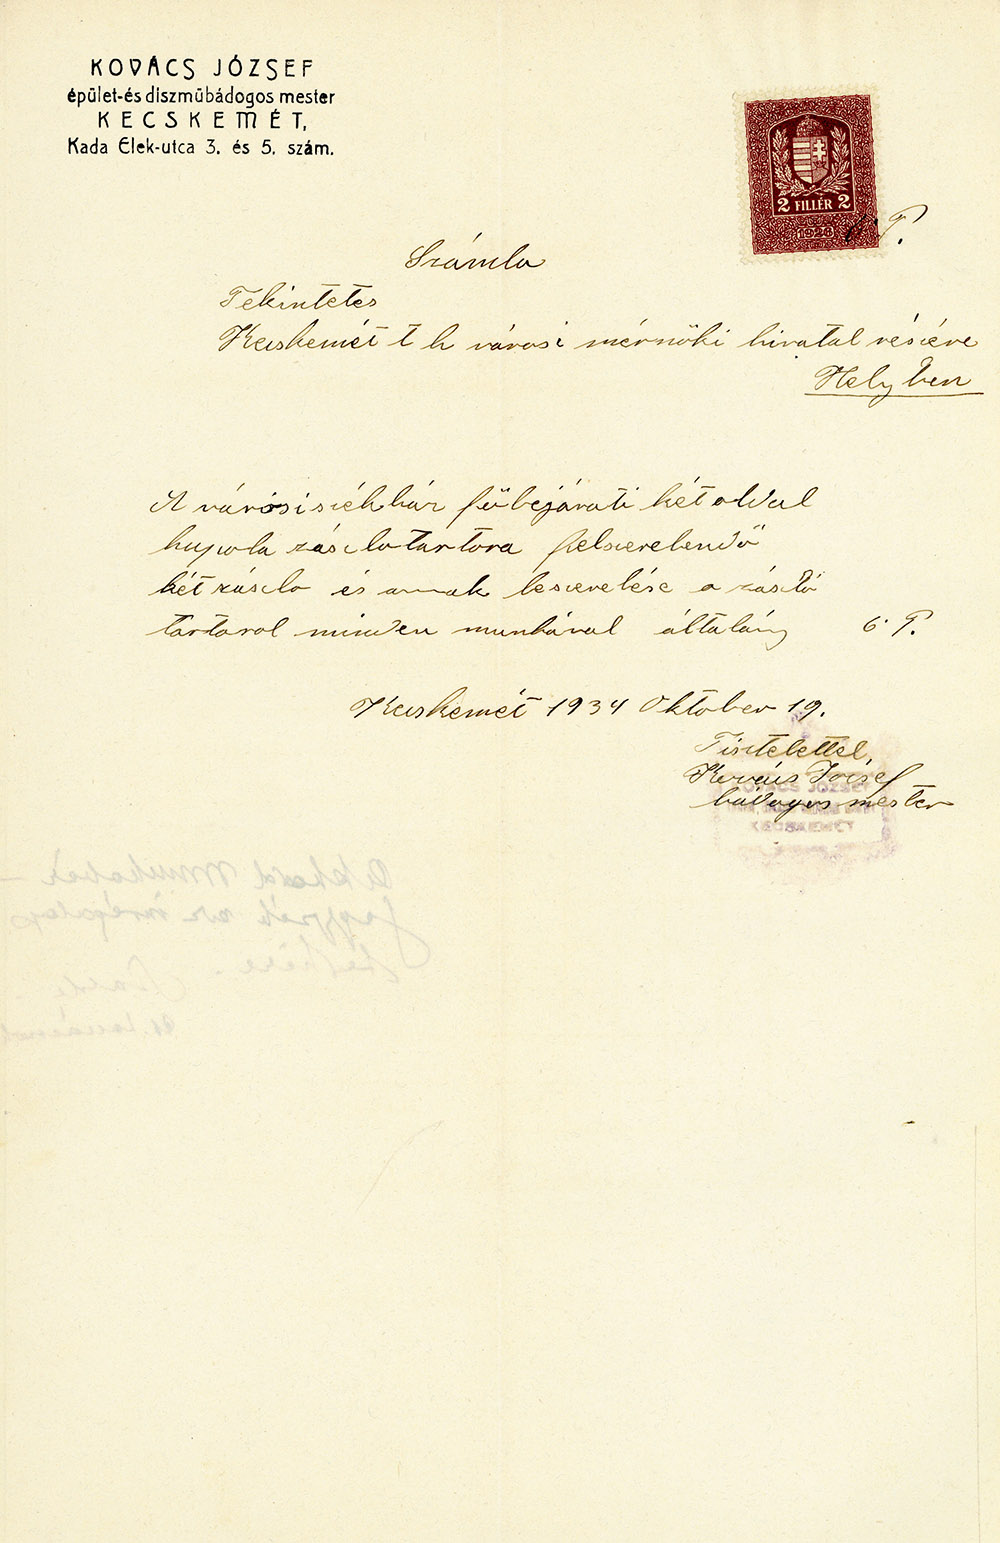 KOVÁCS JÓZSEF
épület-és diszműbádogos mester
KECSKEMÉT,
Kada Elek-utca 3. és 5. szám.
2 FILLÉR 2
1926
6 P.
Számla
Tekintetes
Kecskemét t h városi mérnöki hivatal részére
Helyben
A városi székház főbejárati két oldal
kupola zászlotartora felszerelendő
két zászlo és annak leszerelése a zászló
tartarol minden munkával általány 6 P.
Kecskemét 1934 Oktober 19.
Tisztelettel
Kovács József
bádogos mester
KOVÁCS JÓZSEF
KECSKEMÉT